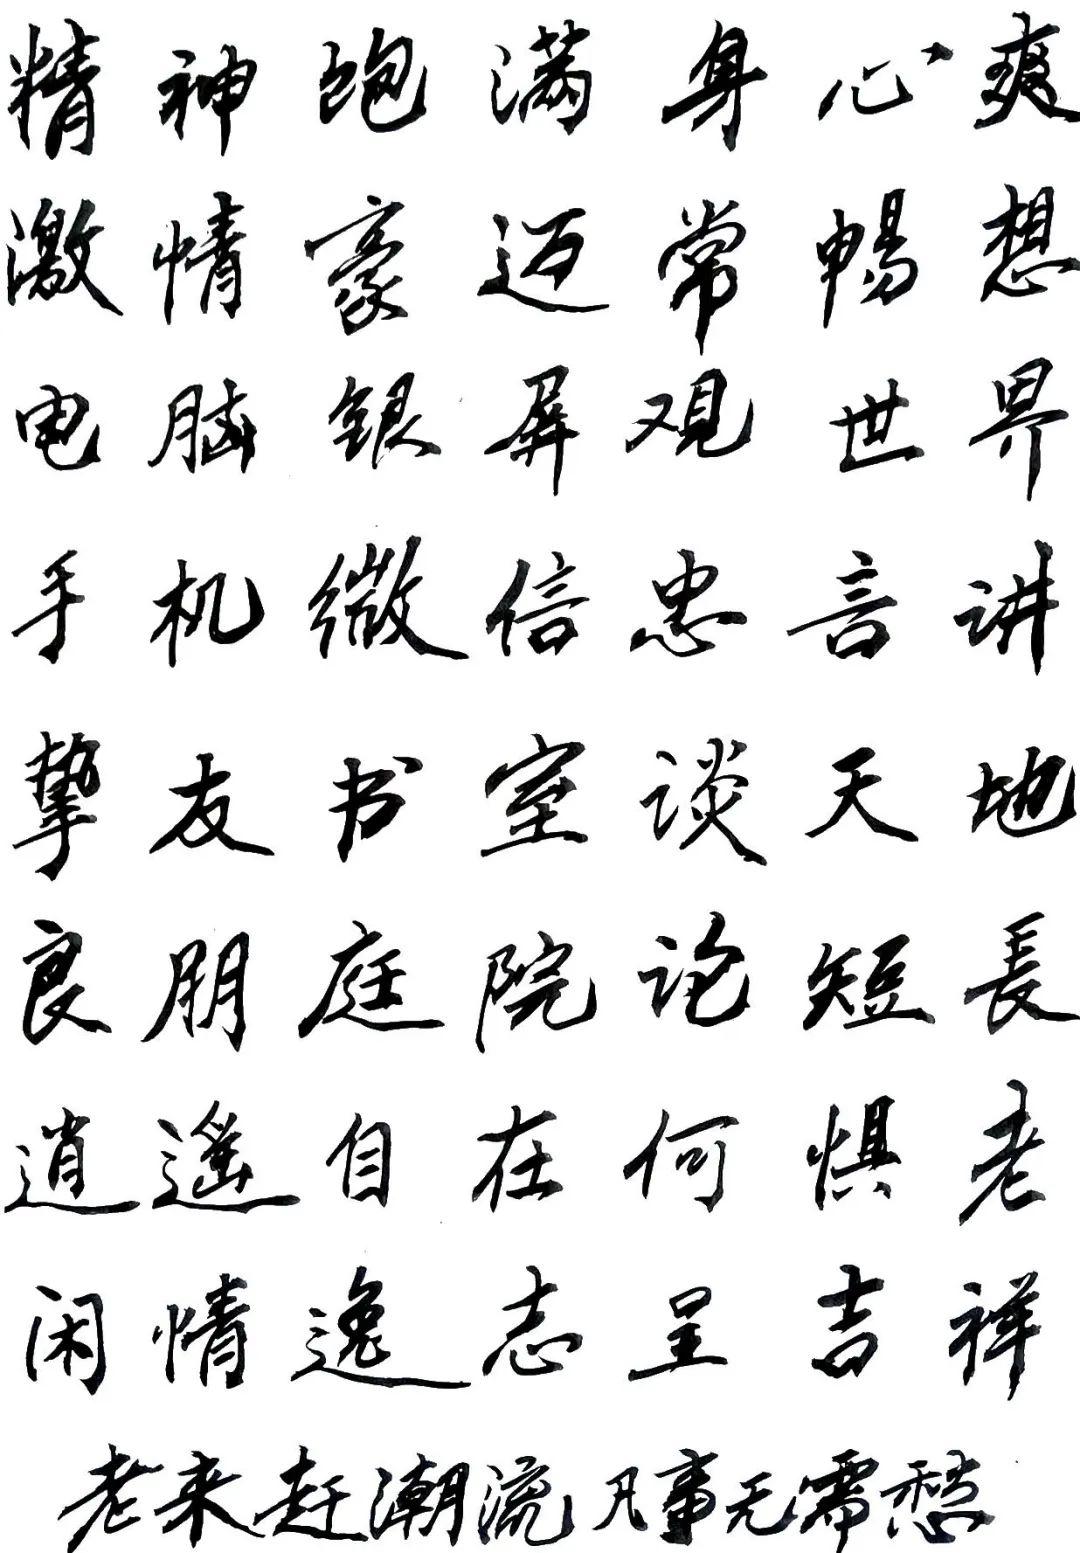 精神饱满身心爽
激情豪迈常畅想
电脑银屏观世界
手机微信忠言讲
挚友书室谈天地
良朋庭院论短長
逍遥自在何惧老
闲情逸志呈吉祥
老来赶潮流凡事无需愁